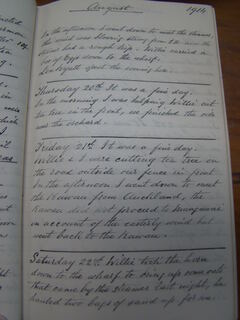 August 1914
In the afternoon I went down to meet the steamer,
the wind was blowing strong from the and the
had a rough trip. Willie carried a
box of Eggs down to the wharf.
spent the evening here.
Thursday 20th It was a fine day.
In the morning I was helping Willie cut
tea tree in the front, we finished the side
near the orchard.
Friday 21st It was a fine day.
Willie & I were cutting tea tree on
the road outside our fence in front.
In the afternoon I went down to meet
the Kawau from Auckland, the
Kawau did not proceed to Mangawai
on account of the easterly wind but
went back to the Kawau.
Saturday 22nd Willie took the horse
down to the wharf to bring up some coal
that came by the steamer last night, he
hauled two bags of sand up for me.